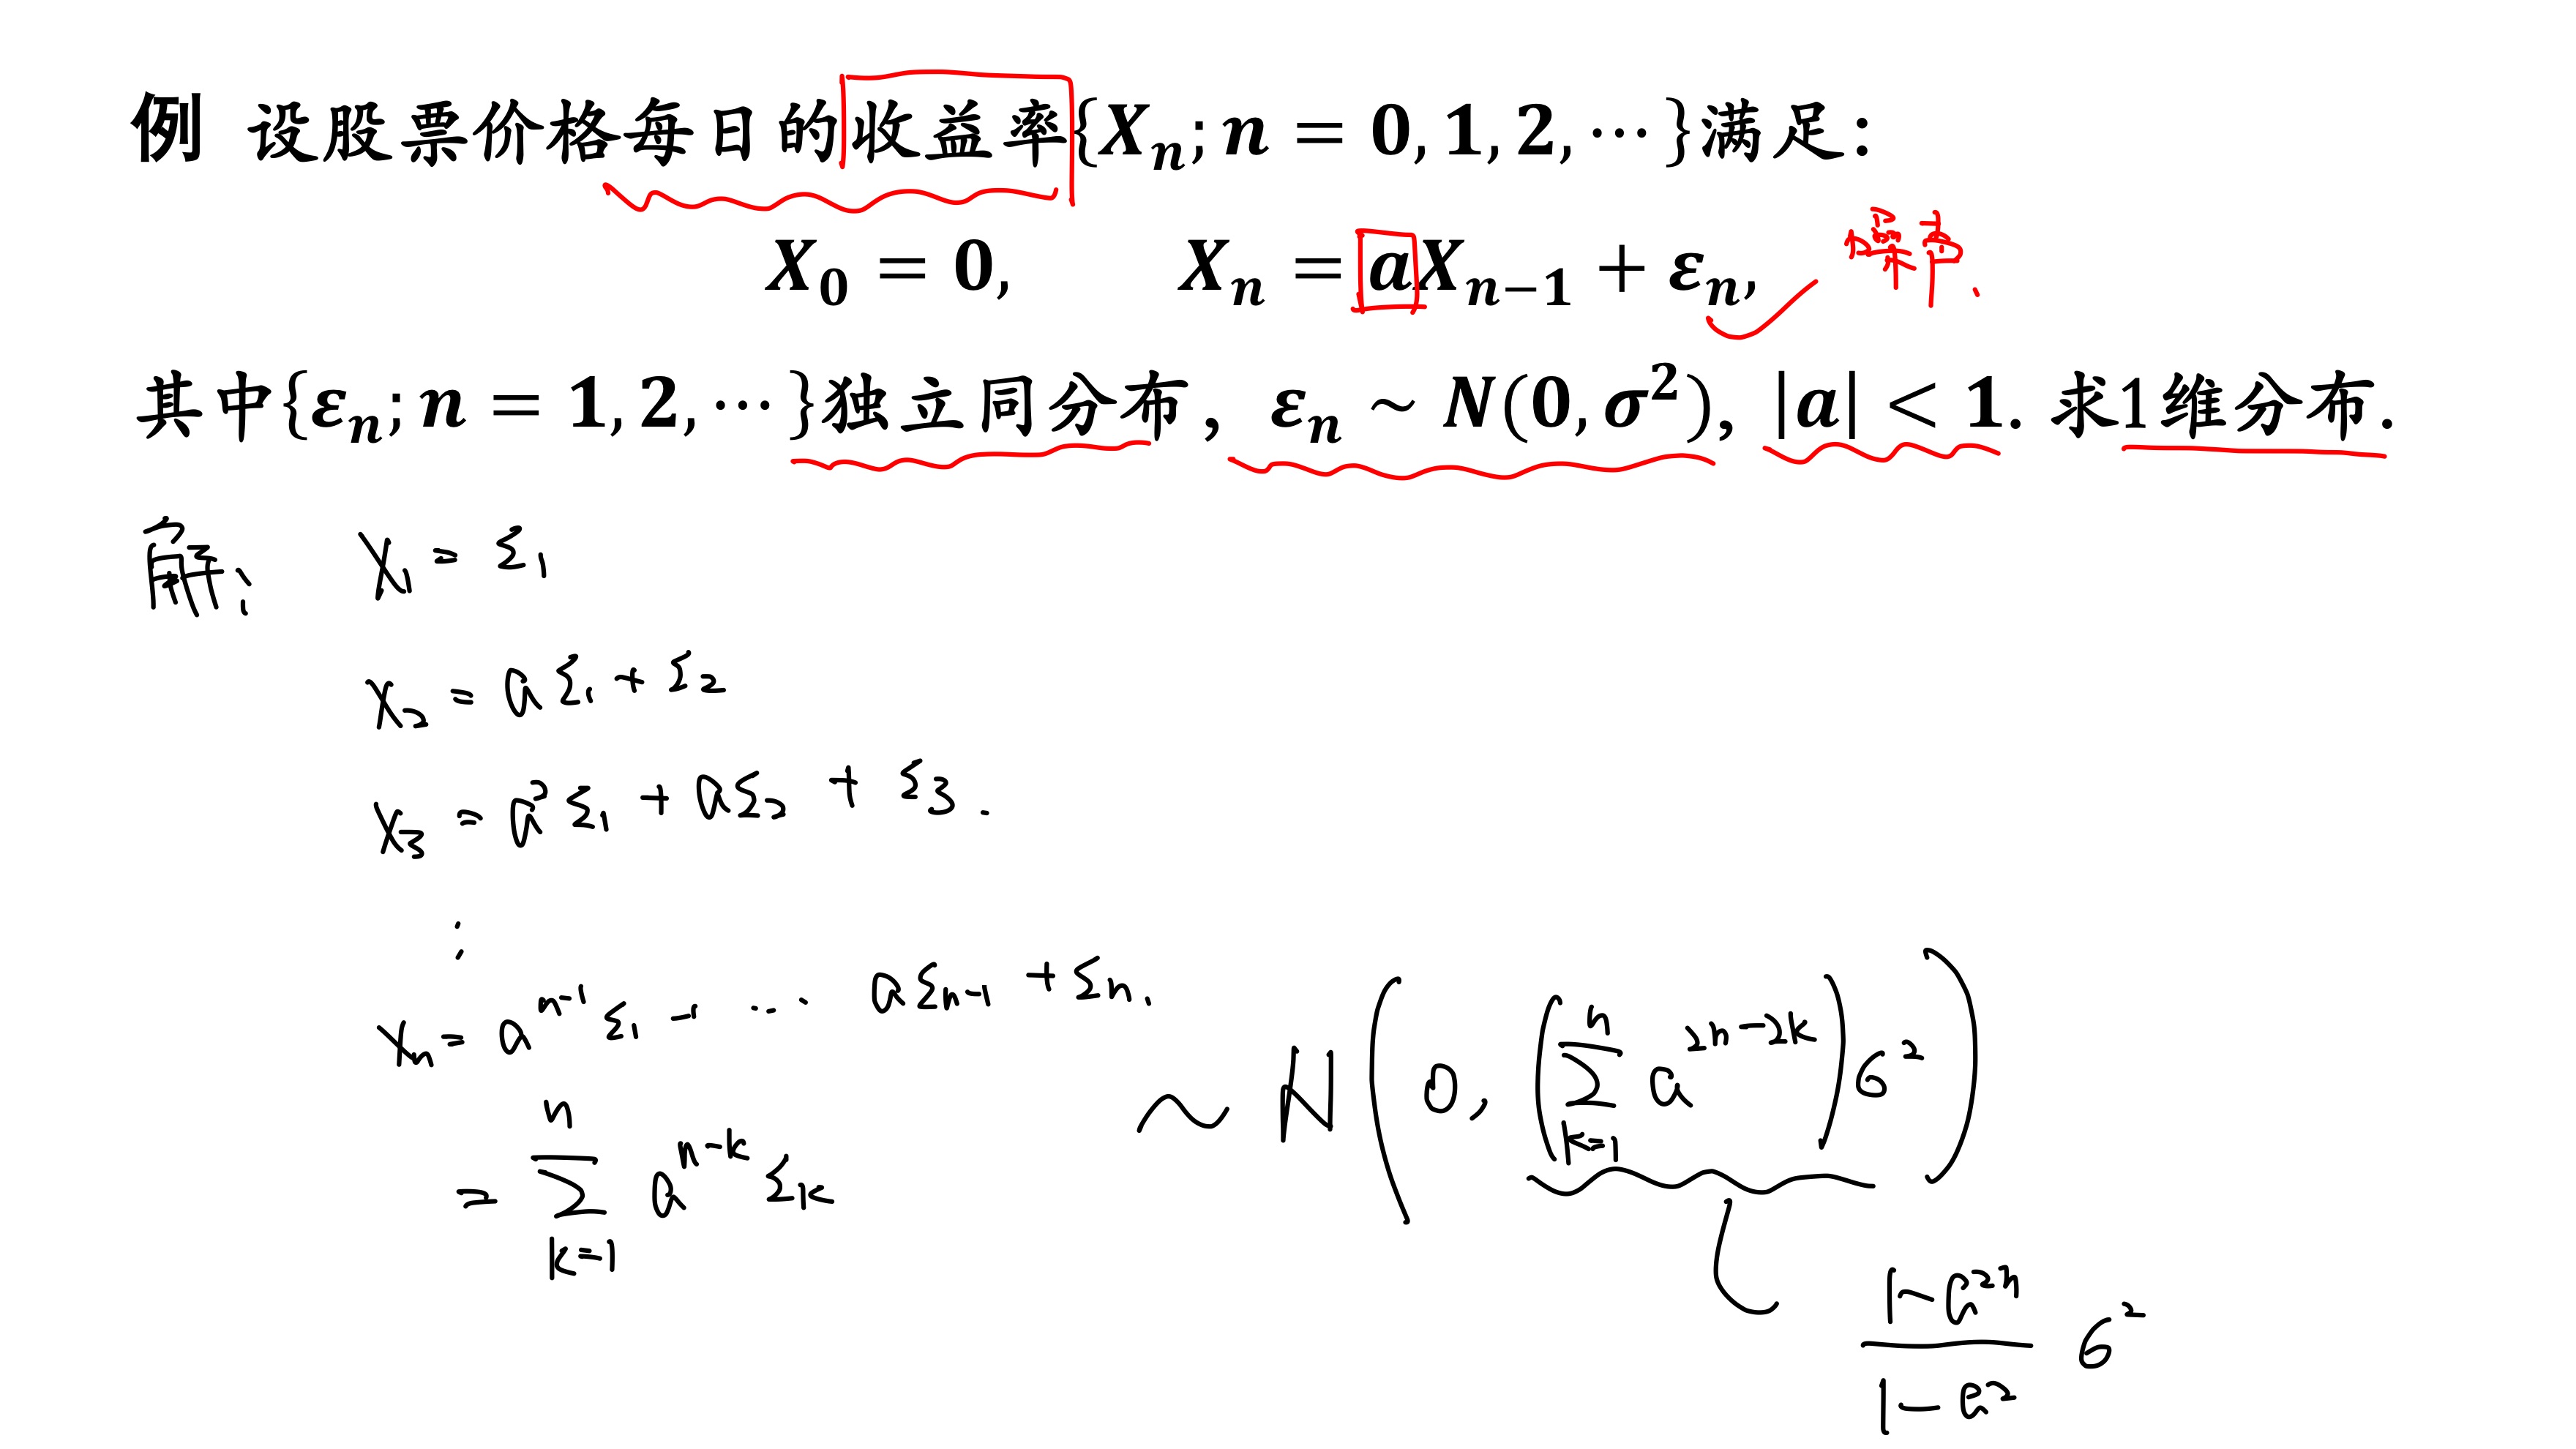 例 设股票价格每日的收益率{Xₙ; n = 0, 1, 2, ⋯ }满足:
X₀ = 0, Xₙ = aXₙ₋₁ + εₙ,
噪声.
其中{εₙ; n = 1, 2, ⋯ }独立同分布, εₙ ~ N(0, σ²), |a| < 1. 求1维分布.
解: X₁ = ε₁
X₂ = aε₁ + ε₂
X₃ = a²ε₁ + aε₂ + ε₃.
⋮
Xₙ = aⁿ⁻¹ε₁ + ⋯ aεₙ₋₁ + εₙ.
= ∑ₖ₌₁ⁿ aⁿ⁻ᵏ εₖ ~ N(0, (∑ₖ₌₁ⁿ a²ⁿ⁻²ᵏ)σ²)
(1-a²ⁿ)/(1-a²) σ²